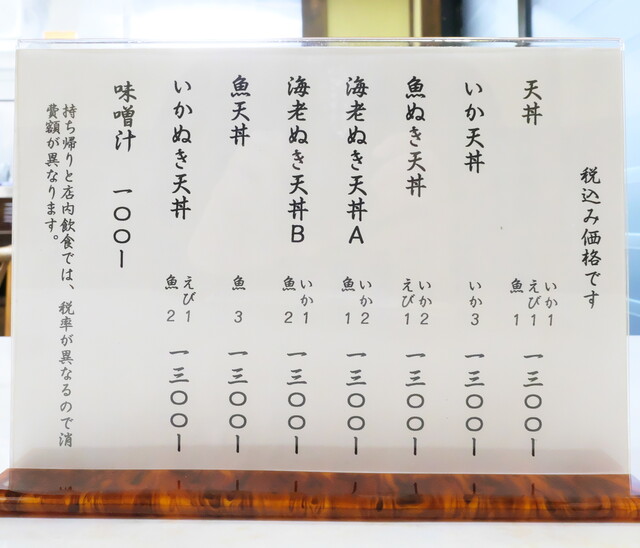 税込み価格です
天丼 いか1 えび1 魚1 一三〇〇ー
いか天丼 いか3 一三〇〇ー
魚ぬき天丼 いか2 えび1 一三〇〇ー
海老ぬき天丼A いか2 魚1 一三〇〇ー
海老ぬき天丼B いか1 魚2 一三〇〇ー
魚天丼 魚3 一三〇〇ー
いかぬき天丼 えび1 魚2 一三〇〇ー
味噌汁 一〇〇ー
持ち帰りと店内飲食では、税率が異なるので消
費額が異なります。